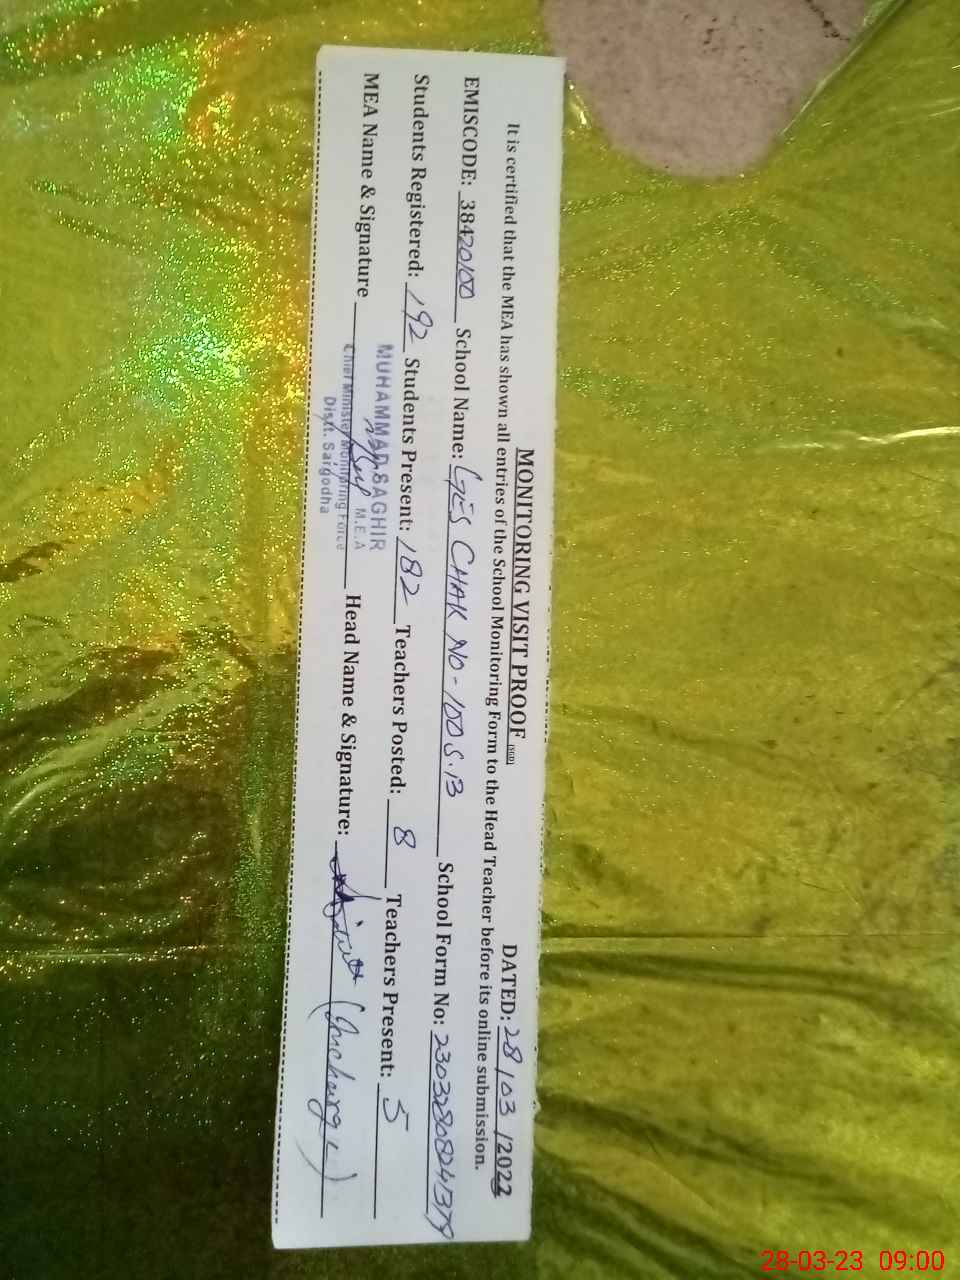 MONITORING VISIT PROOF DATED: 28/03/2022
It is certified that the MEA has shown all entries of the School Monitoring Form to the Head Teacher before its online submission.
EMISCODE: 38420100 School Name: GES CHAK NO-100 S.B School Form No:
Students Registered: 192 Students Present: 182 Teachers Posted: 8 Teachers Present: 5
MEA Name & Signature Head Name & Signature: (Incharge)
MUHAMMAD SAGHIR
M.E.A
Chief Minister Monitoring Force
Distt. Sargodha
28-03-23 09:00